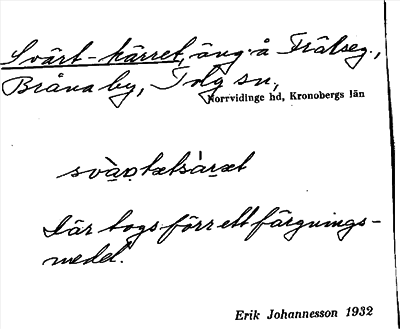 Svärt-kärret, äng å Frälseg.,
Bråna by, Tolg sn,
Norrvidinge hd, Kronobergs län
Där togs förr ett färgnings-
medel.
Erik Johannesson 1932